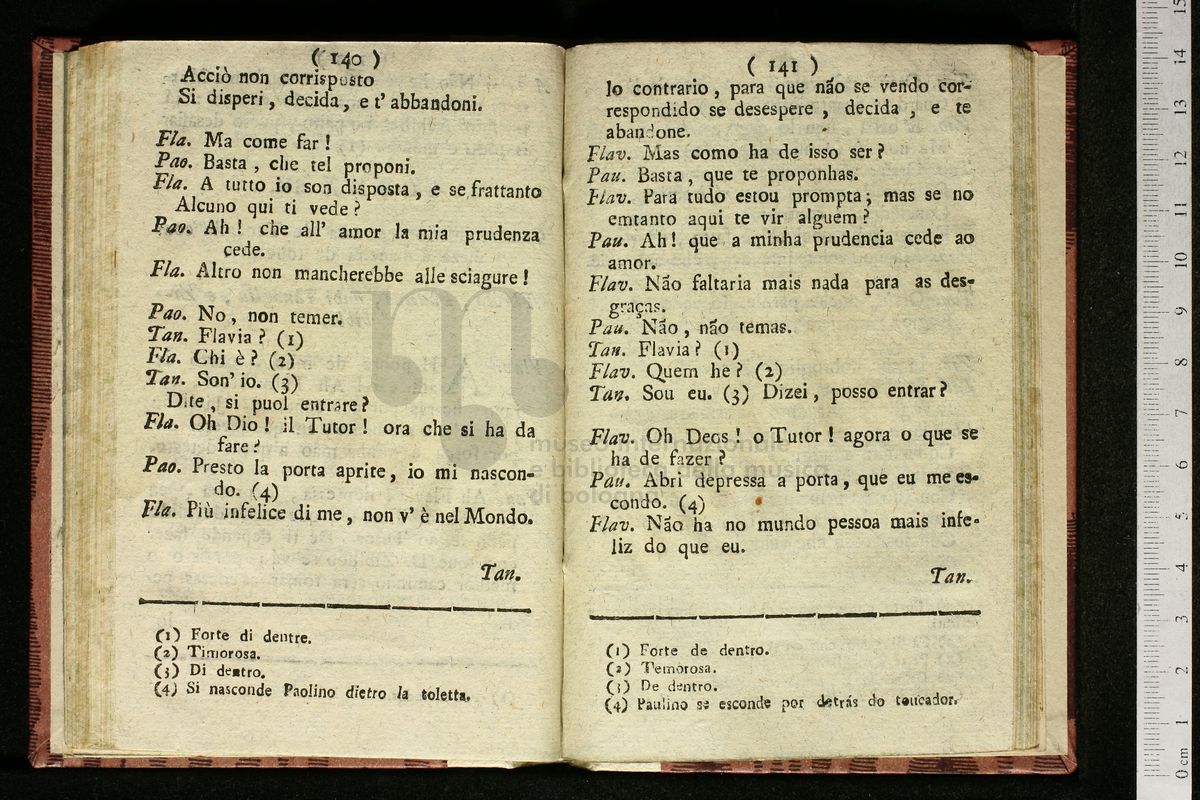 ( 140 )
Acciò non corrisposto
Si disperi, decida, e t' abbandoni.
Fla. Ma come far!
Pao. Basta, che tel proponi.
Fla. A tutto io son disposta, e se frattanto
Alcuno qui ti vede?
Pao. Ah! che all' amor la mia prudenza
cede.
Fla. Altro non mancherebbe alle sciagure!
Pao. No, non temer.
Tan. Flavia? (1)
Fla. Chi è? (2)
Tan. Son' io. (3)
Dite, si puol entrare?
Fla. Oh Dio! il Tutor! ora che si ha da
fare?
Pao. Presto la porta aprite, io mi nascon-
do. (4)
Fla. Più infelice di me, non v' è nel Mondo.
Tan.
(1) Forte di dentre.
(2) Timorosa.
(3) Di dentro.
(4) Si nasconde Paolino dietro la toletta.
( 141 )
lo contrario, para que não se vendo cor-
respondido se desespere, decida, e te
abandone.
Flav. Mas como ha de isso ser?
Pau. Basta, que te proponhas.
Flav. Para tudo estou prompta; mas se no
emtanto aqui te vir alguem?
Pau. Ah! que a minha prudencia cede ao
amor.
Flav. Não faltaria mais nada para as des-
graças.
Pau. Não, não temas.
Tan. Flavia? (1)
Flav. Quem he? (2)
Tan. Sou eu. (3) Dizei, posso entrar?
Flav. Oh Deos! o Tutor! agora o que se
ha de fazer?
Pau. Abri depressa a porta, que eu me es-
condo. (4)
Flav. Não ha no mundo pessoa mais infe-
liz do que eu.
Tan.
(1) Forte de dentro.
(2) Temorosa.
(3) De dentro.
(4) Paulino se esconde por detrás do toucador.
museo internazionale
e biblioteca della musica
di bologna
0 cm 1 2 3 4 5 6 7 8 9 10 11 12 13 14 15